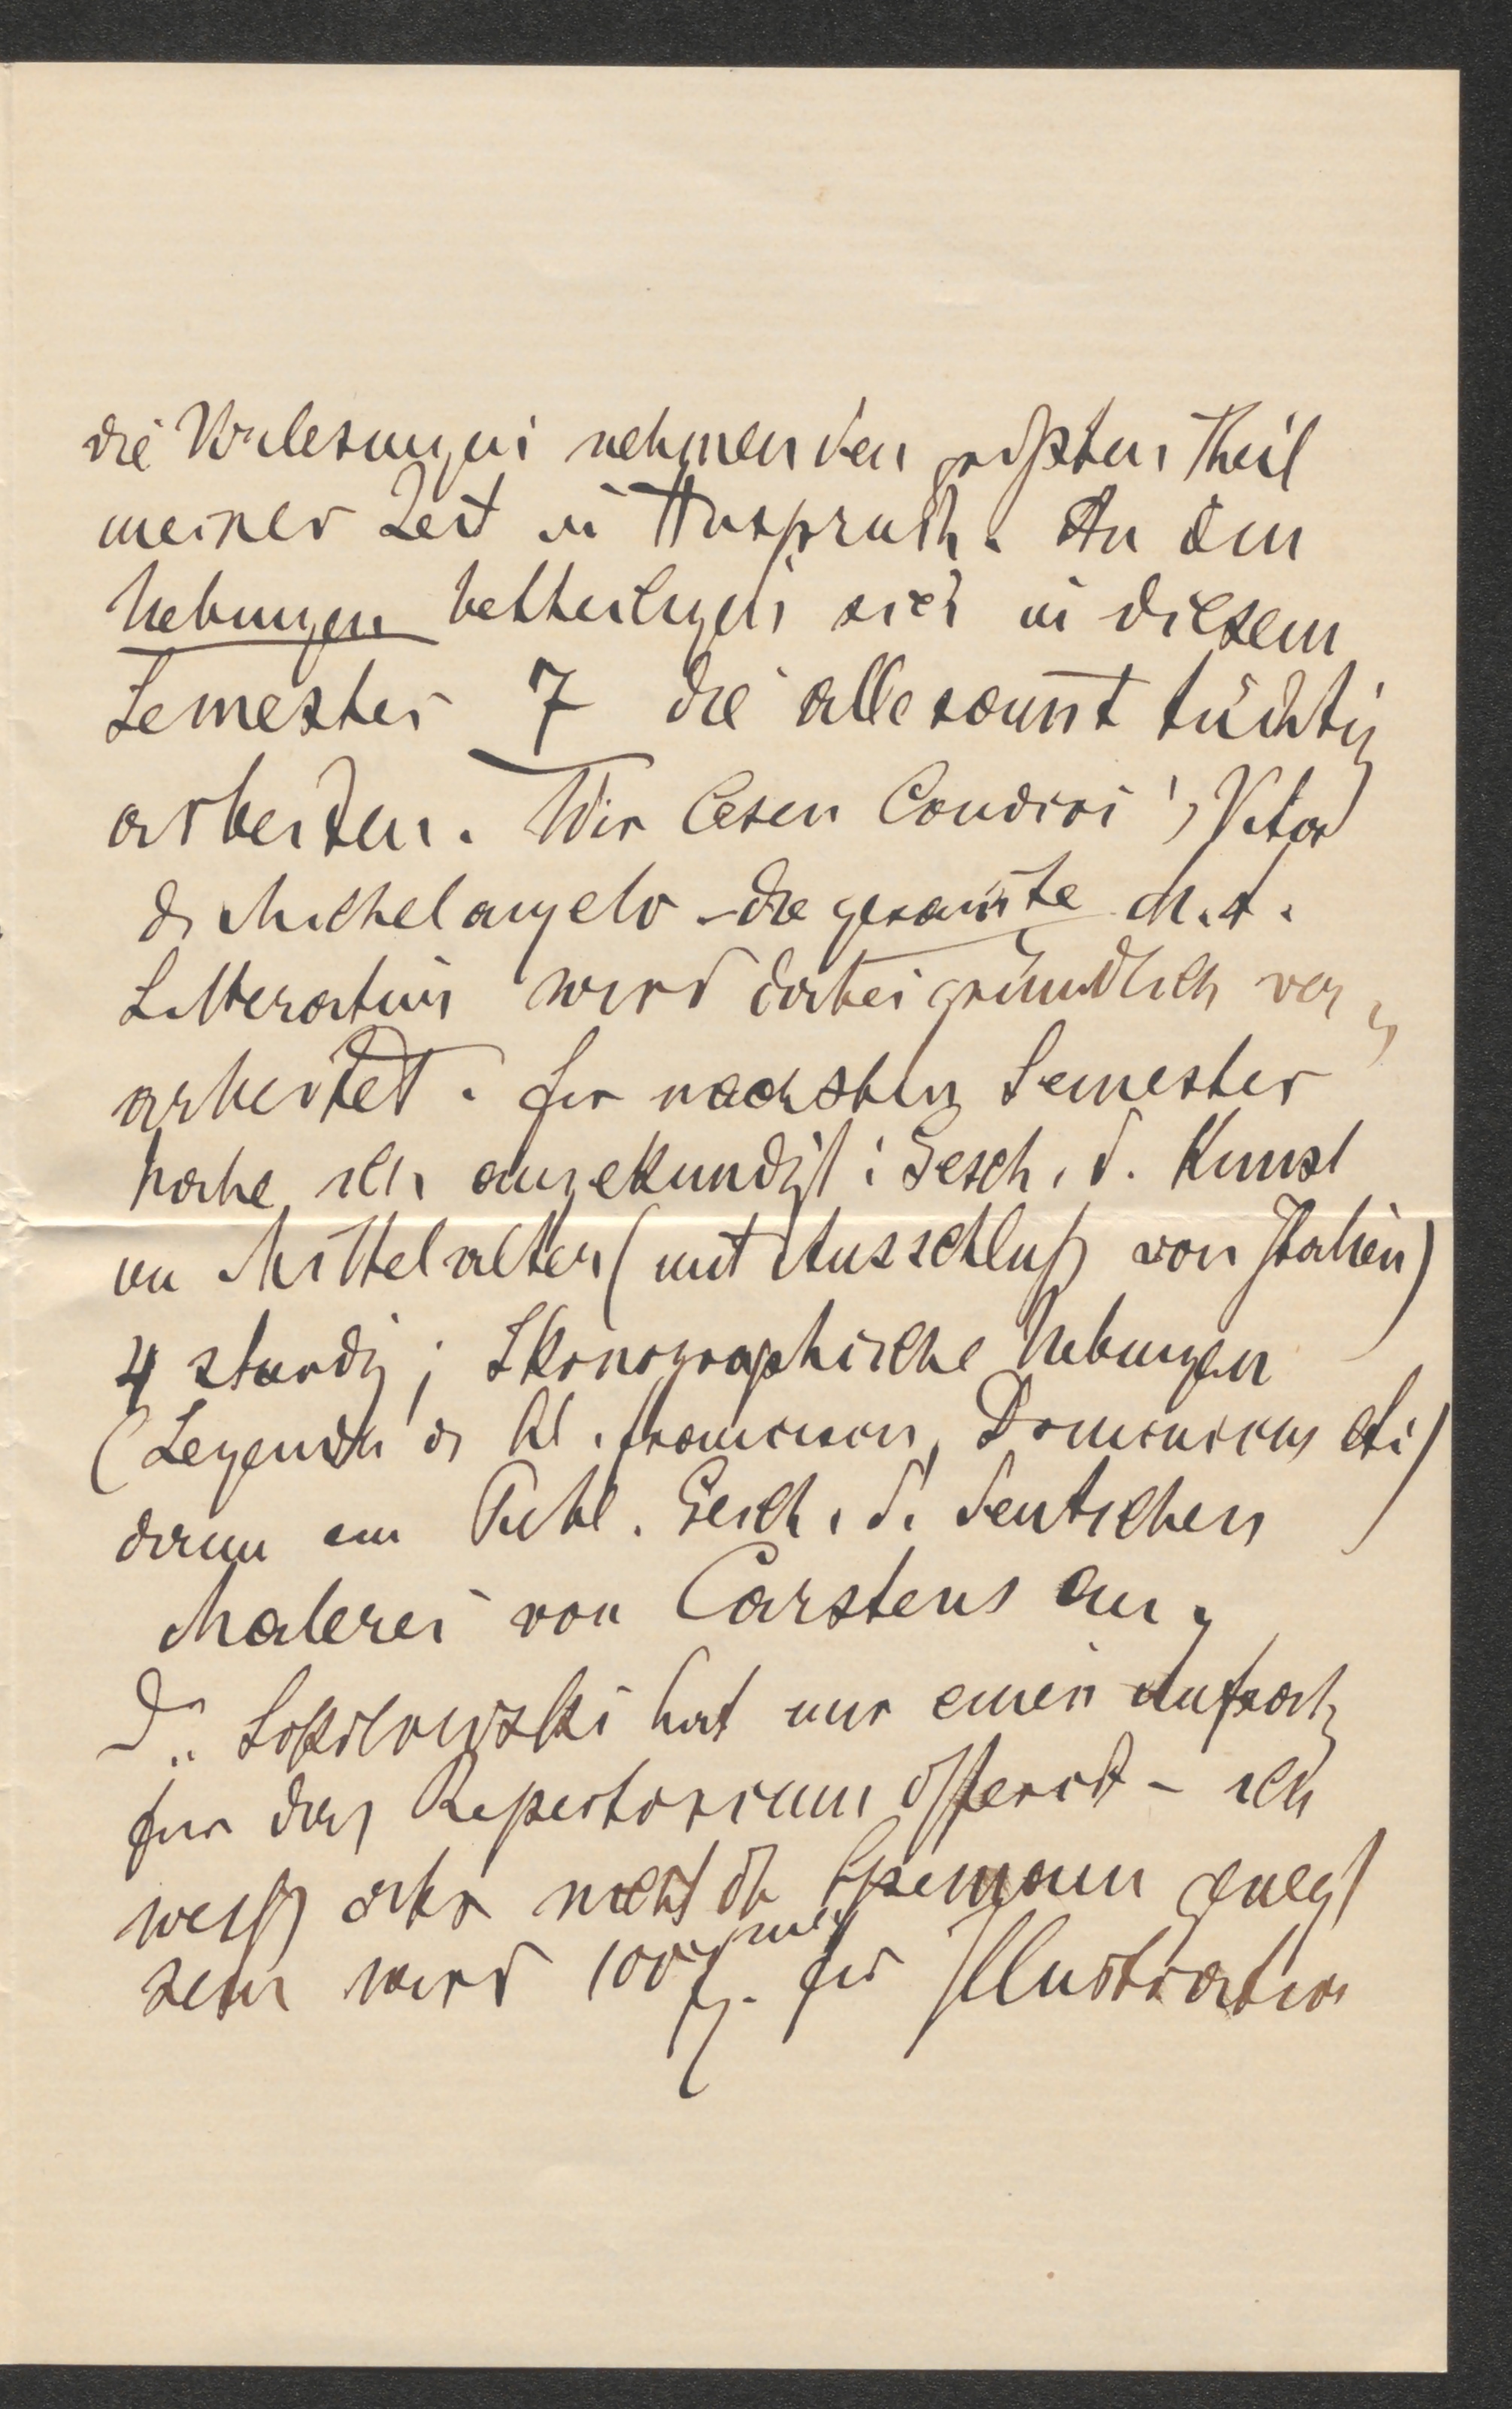 die Vorlesungen nehmen den größten Theil
meiner Zeit in Anspruch. An den
Uebungen betheiligen sich in diesem
Semester 7 die allesam̅t tüchtig
arbeiten. Wir lesen Condivi's Vita
di Michelangelo - die gesam̅te M.A.
Litteratur wird dabei gründlich ver-
arbeitet. Für nächsten Semester
habe ich angekündigt: Gesch. d. Kunst
im Mittelalter (mit Ausschluß von Italien)
4 stündig; Ikonographische Uebungen
(Legende d. hl. Franciscus, Dominicus etc)
dann ein Publ. Gesch. d. deutschen
Malerei von Carstens an.
Dr. Sokolowski hat mir einen Aufsatz
für das Repertorium offerirt - ich
weiß aber nicht ob Spemann geneigt
sein wird 100 für Illustration